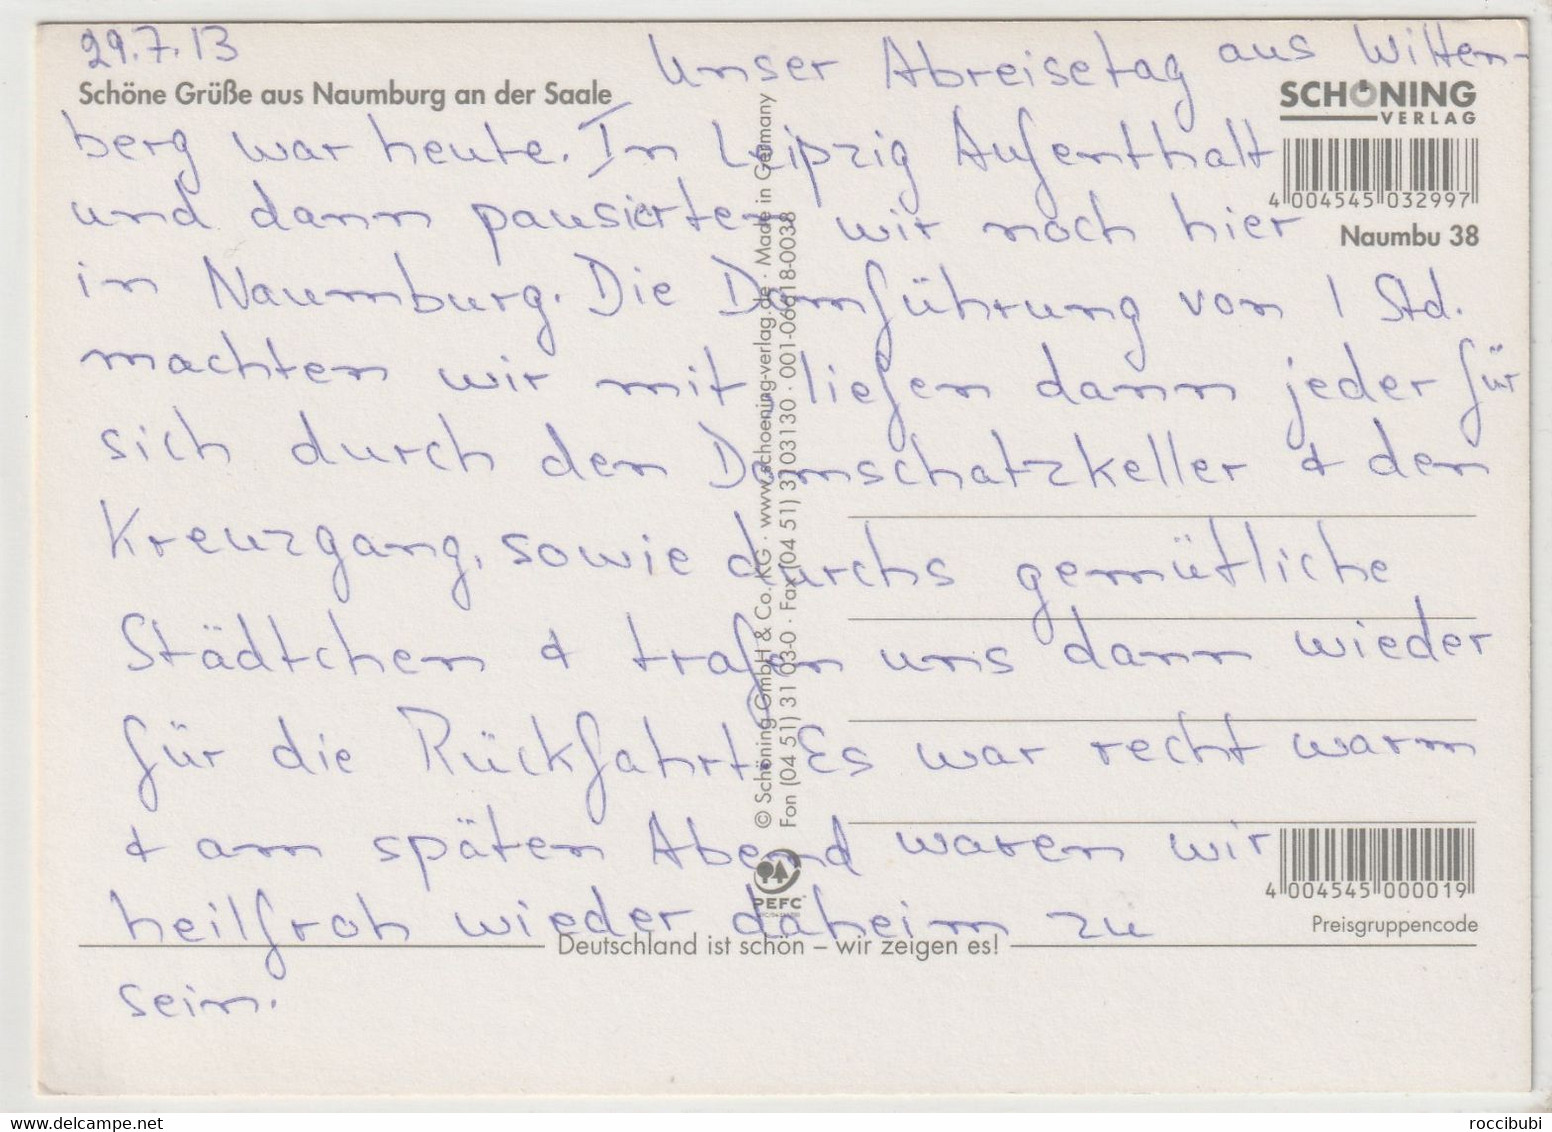 29.7.13
Schöne Grüße aus Naumburg an der Saale
Unser Abreisetag aus Witten-
berg war heute. In Leipzig Aufenthalt
und dann pausierten wir noch hier
in Naumburg. Die Domführung von 1 Std.
machten wir mit, liefen dann jeder für
sich durch den Domschatzkeller & den
Kreuzgang, sowie durchs gemütliche
Städtchen & trafen uns dann wieder
für die Rückfahrt. Es war recht warm
& am späten Abend waren wir
heilfroh wieder daheim zu
sein.
SCHÖNING
VERLAG
4 004545 032997
Naumbu 38
© Schöning GmbH & Co. KG · www.schoening-verlag.de · Made in Germany
Fon (04 51) 31 03-0 · Fax (04 51) 3103130 · 001-06018-0038
PEFC
4 004545 000019
Preisgruppencode
Deutschland ist schön – wir zeigen es!
delcampe.net
roccibubi